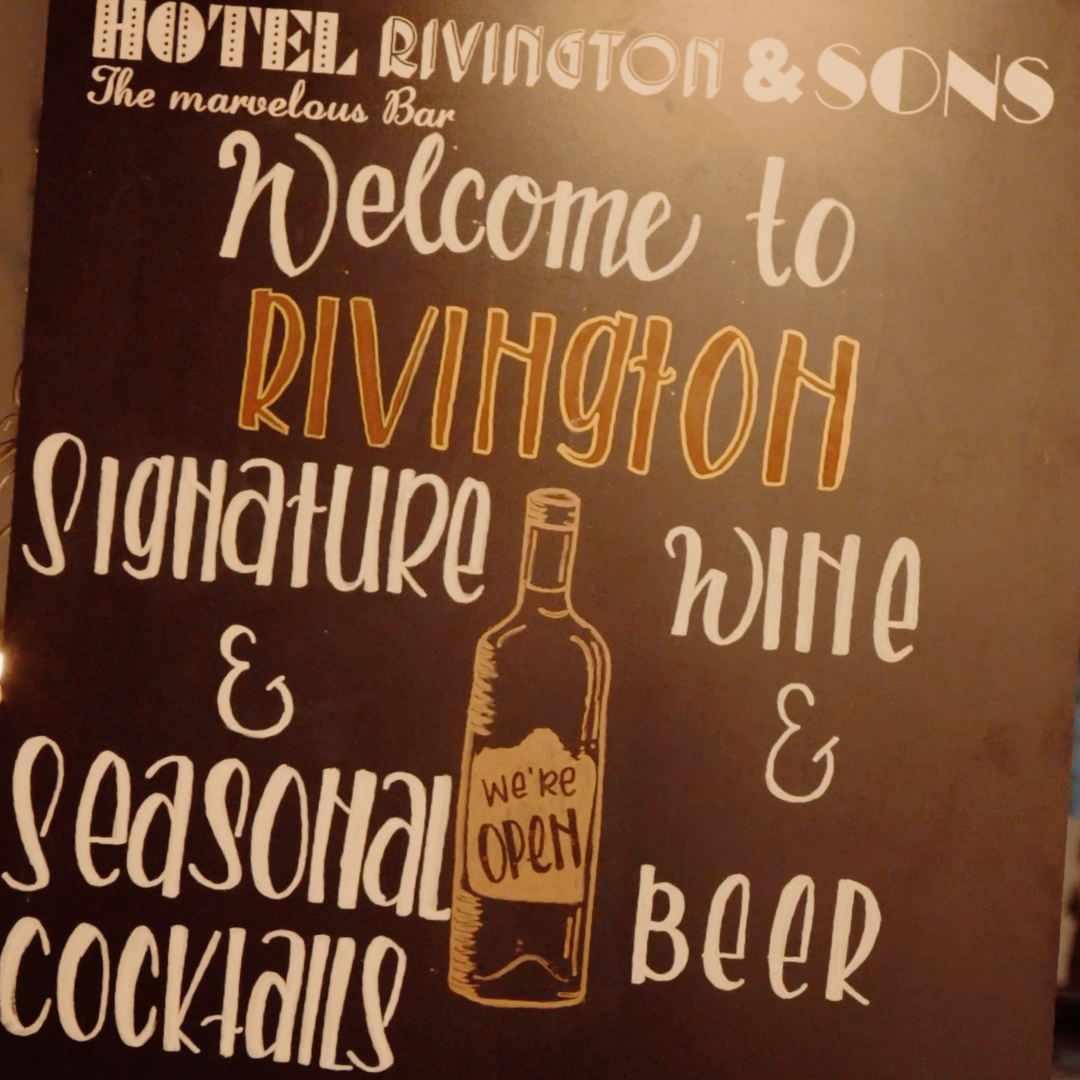 HOTEL RIVINGTON & SONS
The marvelous Bar
Welcome to
RIVINgtON
SIgNatURe
&
SeasONaL
COCKtaILS
We'Re
OPeN
WINe
&
BeeR